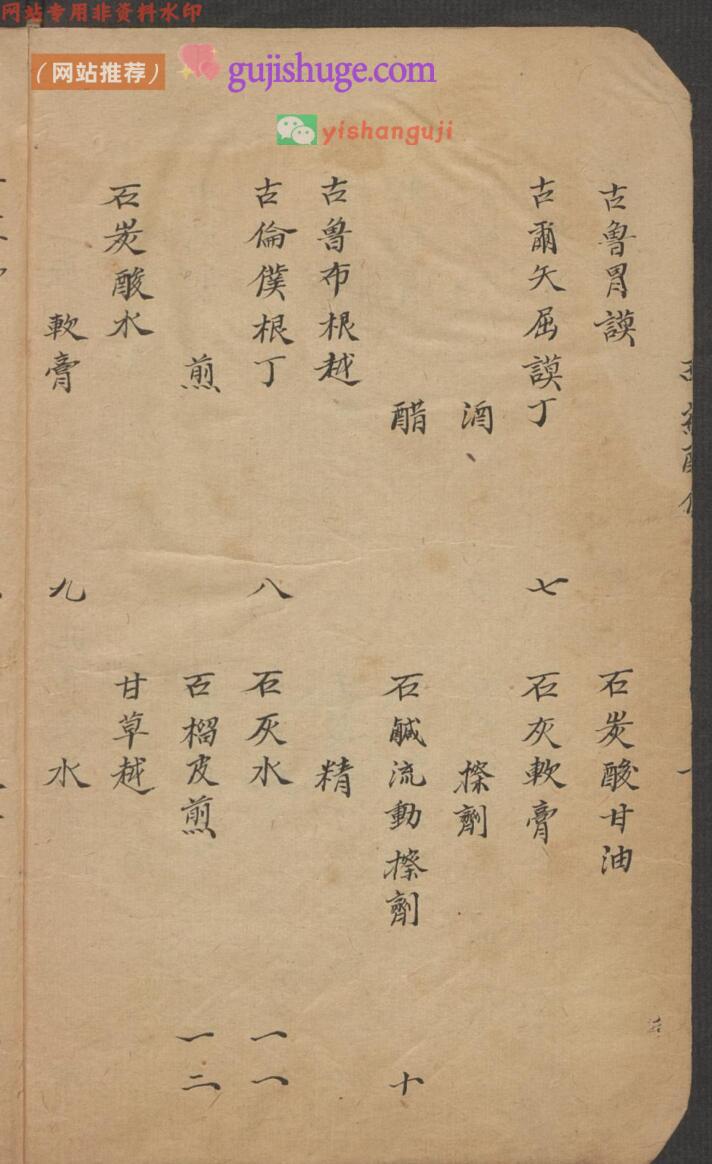 网站专用非资料水印
（网站推荐） gujishuge.com
yishanguji
古魯胃謨
石炭酸甘油
古爾矢屈謨丁 七
石灰軟膏
酒、
擦劑
醋
石鹹流動擦劑 十
古魯布根越
精
古倫僕根丁 八
石灰水 一一
煎
石榴皮煎 一二
石炭酸水
甘草越
軟膏 九
水